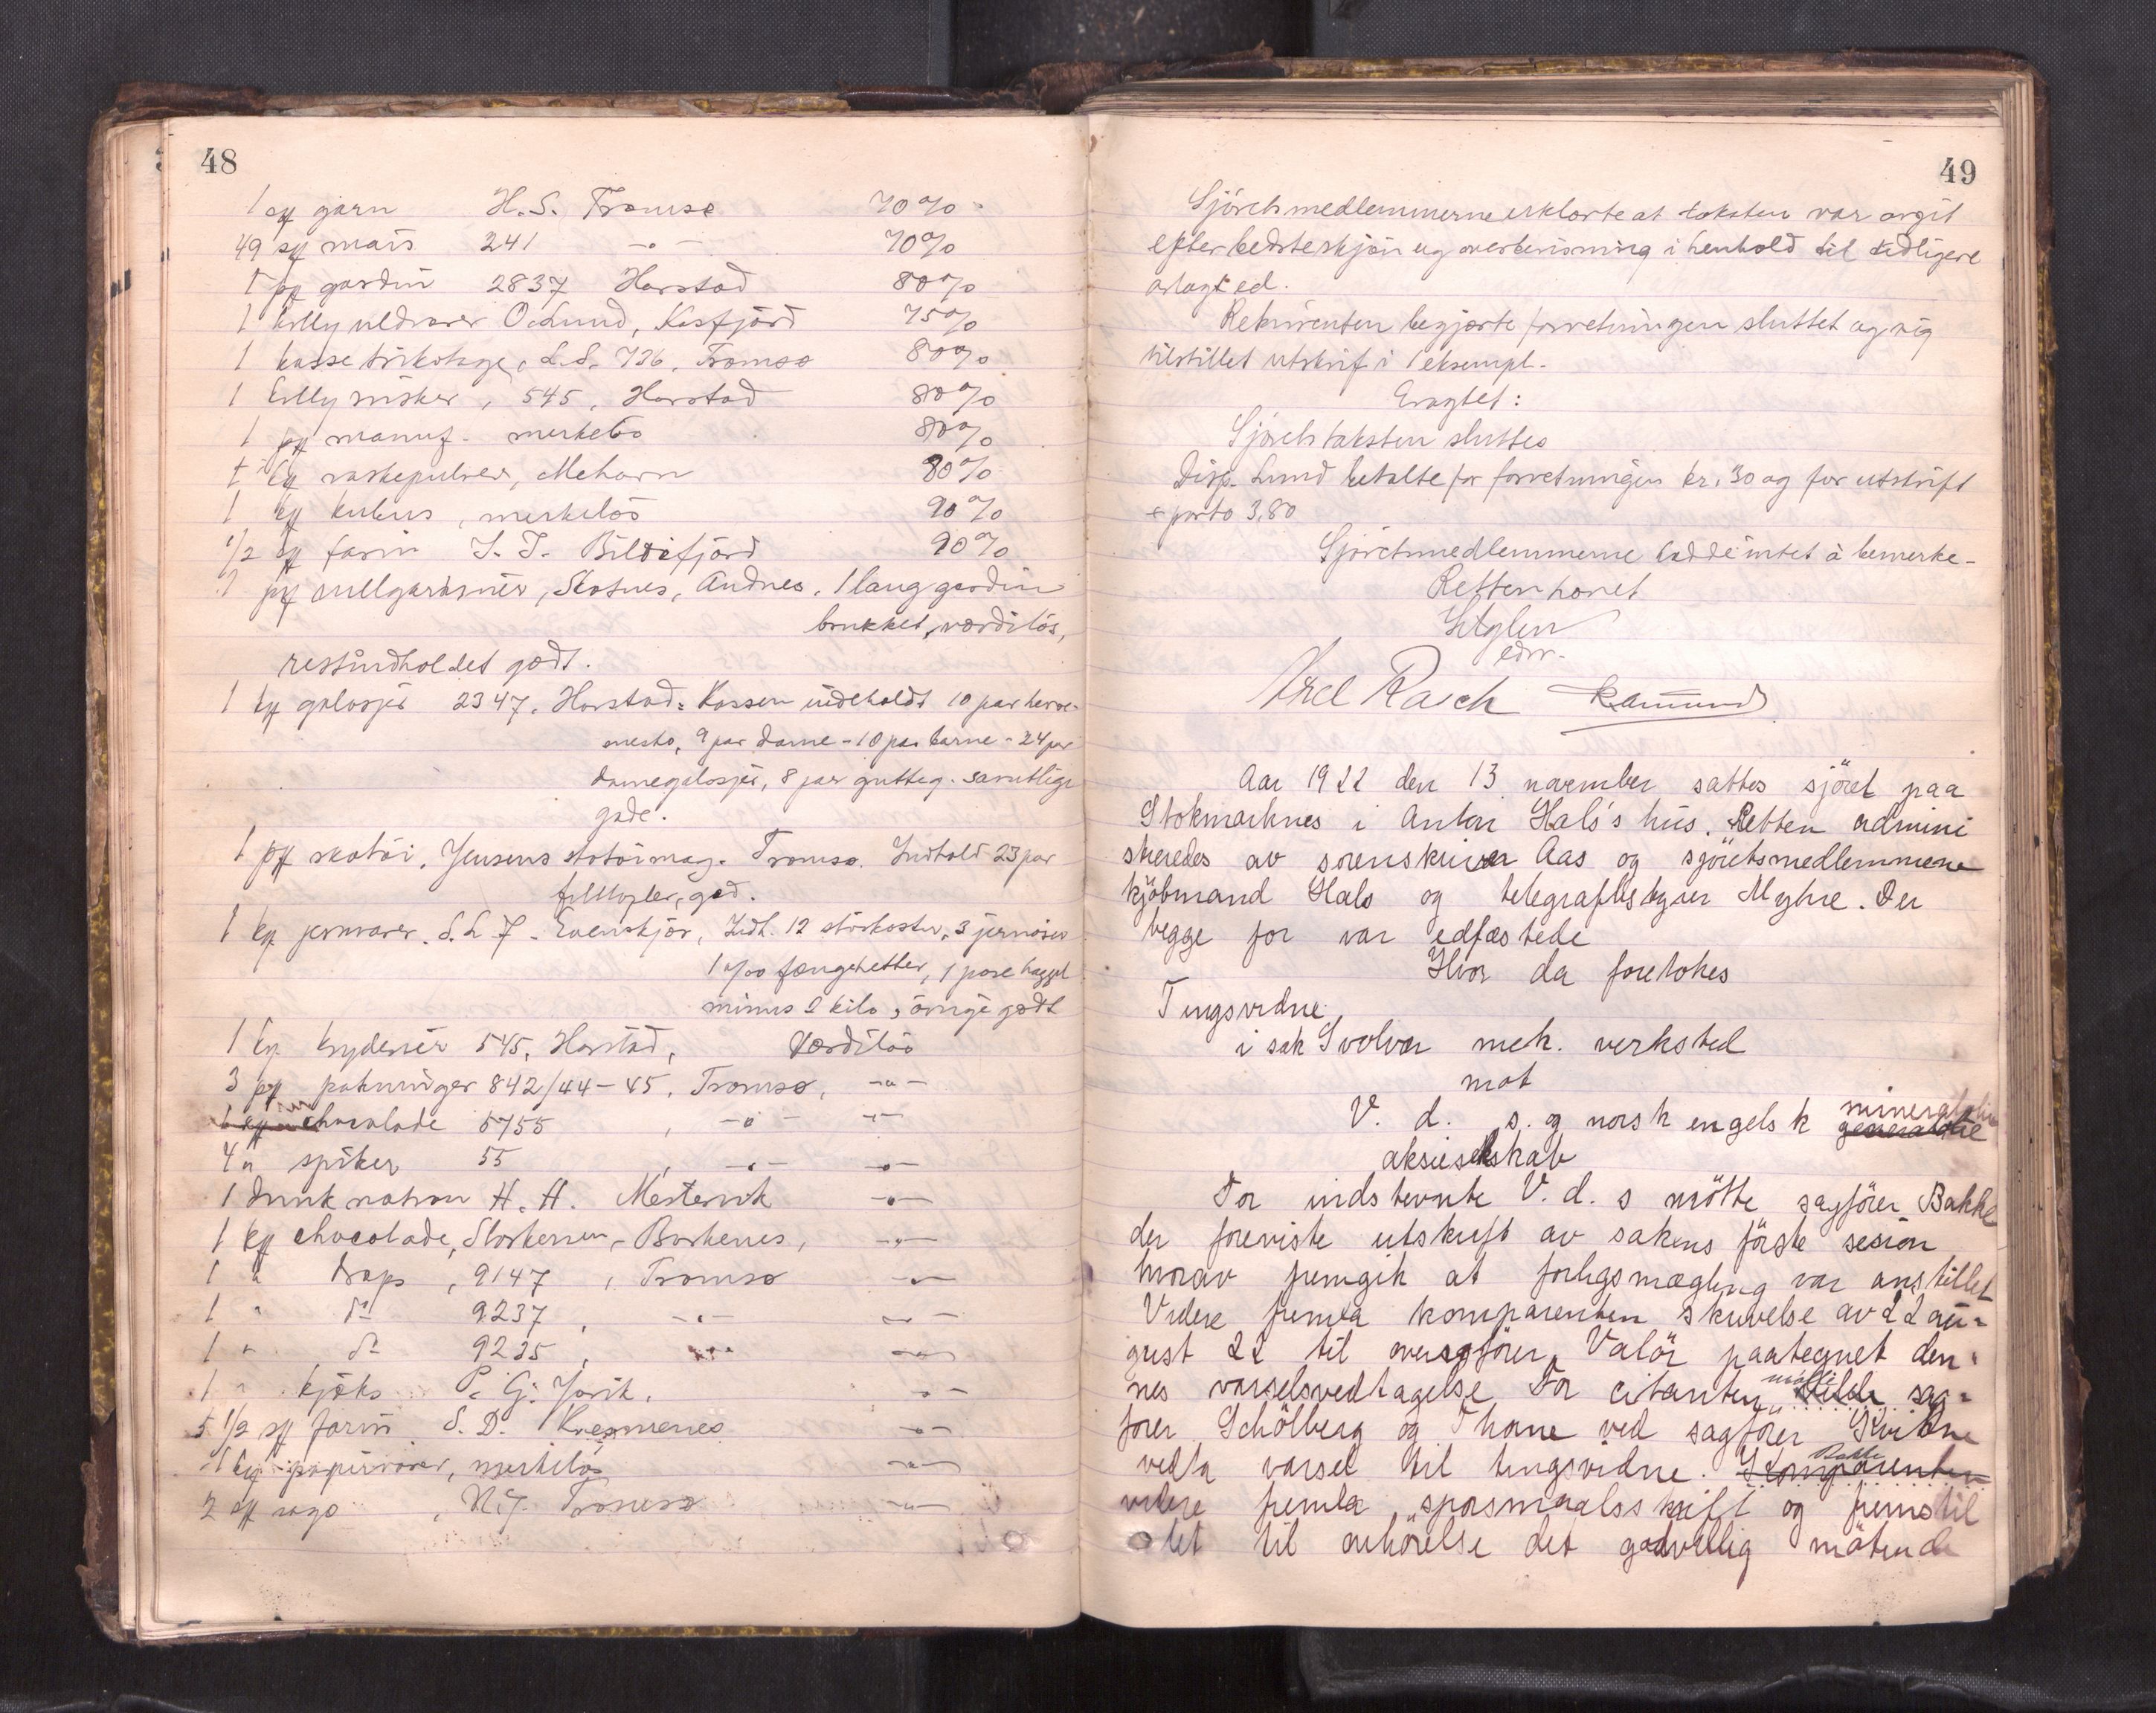 48
1 sk garn H. S. Tromsø 70%
49 sk mais 241 -"- 70%
1 pk gardin 2837 Harstad 80%
1 kolly uldvarer O. Lund, Kasfjord 75%
1 kasse trikotage, L.S. 736, Tromsø 80%
1 kolly 545, Harstad 80%
1 pk manuf. merkelös 80%
1 kg vaskepulver, Mehavn 80%
1 kg merkelös 90%
1/2 sk farin J. J. Bildtfjord 90%
1 pk rullgardiner, Skotnes, Andnes. 1 lang gardin
brukket, værdilös,
restindholdet godt.
1 kg galosjer 2347, Harstad. Kassen indeholdt 10 par herre-
9 par dame - 10 par barne - 24 par
damegalosjer, 8 par gutteg. samtlige
gode.
1 pk skotöi, Jensens skotöimag. Tromsø. Indhold 23 par
god.
1 kg jernvarer. S. L. J. Evenskjær, Indh. 12 3
1 fænghetter, 1 pose haggel
minus 2 kilo, övrige godt
1 kg. krydderier 545, Harstad, Værdilös
3 pk pakninger 842/44-45, Tromsø, -"-
chocolade 5755, -"- -"-
4 " spiker 55, -"- -"-
1 dunk natron H. H. Mestervik -"-
1 kg chocolade, Borkenes, -"-
1 " drops, 9147, Tromsø -"-
1 " do 9237, -"- -"-
1 " do 9235, -"- -"-
1 " kjæks P. G. -"-
5 1/2 sk farin S. D. -"-
1 kg papirvarer, merkelös -"-
2 sk sago, N.J. Tromsø -"-
49
Sjöretsmedlemmerne erklærte at taksten var avgit
efter bedste skjön og overbevisning i henhold til tidligere
avlagt ed.
Rekvirenten begjærte forretningen sluttet og sig
tilstillet utskrift i 1 eksempl.
Eragtet:
Sjöretstaksten sluttes
Disp. Lund betalte for forretningen kr. 30 og for utskrift
+ porto 3,80
Sjöretsmedlemmerne hadde intet å bemerke.
Retten hævet
edsv.
Axel Rasch
Aar 1922 den 13 november sattes sjöret paa
Stokmarknes i Anton Hals's hus. Retten admini
streredes av sorenskriver Aas og sjöretsmedlemmene
kjöbmand Hals og telegrafbestyrer Myhre. Der
begge for var edfæstede
Hvor da foretokes
Tingsvidne
i sak Svolvær mek. verksted
mot
V. d. s. og norsk engelsk mineralolie
aksieselskab
For indstevnte V. d. s mötte sagförer Bakke
der foreviste utskrift av sakens förste sesion
hvorav fremgik at forligsmægling var anstillet
Videre fremla komparenten skrivelse av 22 au-
gust 22 til oversagförer Valör paategnet den-
nes varselsvedtagelse For citanten mötte sag-
förer Schölberg og Thone ved sagförer Kvitne
vedta varsel til tingsvidne. Komparenten Bakke
videre fremla spörsmaalsskrift og fremstil
let til avhörelse det godvillig mötende